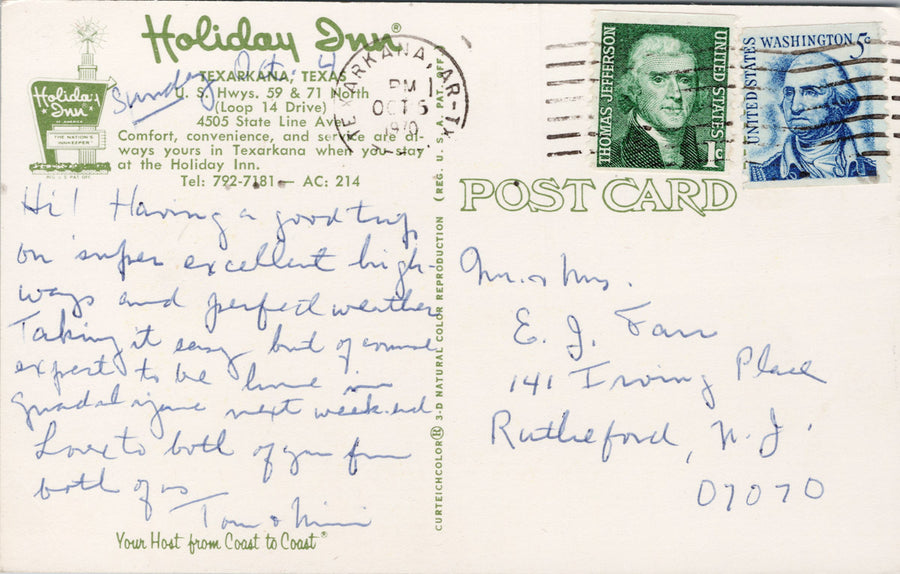 Holiday Inn®
TEXARKANA, TEXAS
Sunday Oct. 4
U. S. Hwys. 59 & 71 North
(Loop 14 Drive)
4505 State Line Ave.
Comfort, convenience, and service are al-
ways yours in Texarkana when you stay
at the Holiday Inn.
Tel: 792-7181 — AC: 214
Holiday Inn
OF AMERICA
THE NATION'S
INNKEEPER
REG. U.S. PAT. OFF.
Hi! Having a good trip
on super excellent high-
ways and perfect weather
Taking it easy but of course
expect to be home in
Guadalajara next week-end.
Love to both of you from
both of us
Tom & Mimi
Your Host from Coast to Coast®
CURTEICHCOLOR® 3-D NATURAL COLOR REPRODUCTION (REG. U. S. A. PAT. OFF.)
TEXARKANA, AR-TX
PM
OCT 5
1970
THOMAS JEFFERSON
UNITED STATES
1c
UNITED STATES
WASHINGTON 5c
POST CARD
Mr. & Mrs.
E. J. Farr
141 Irving Place
Rutherford, N. J.
07070